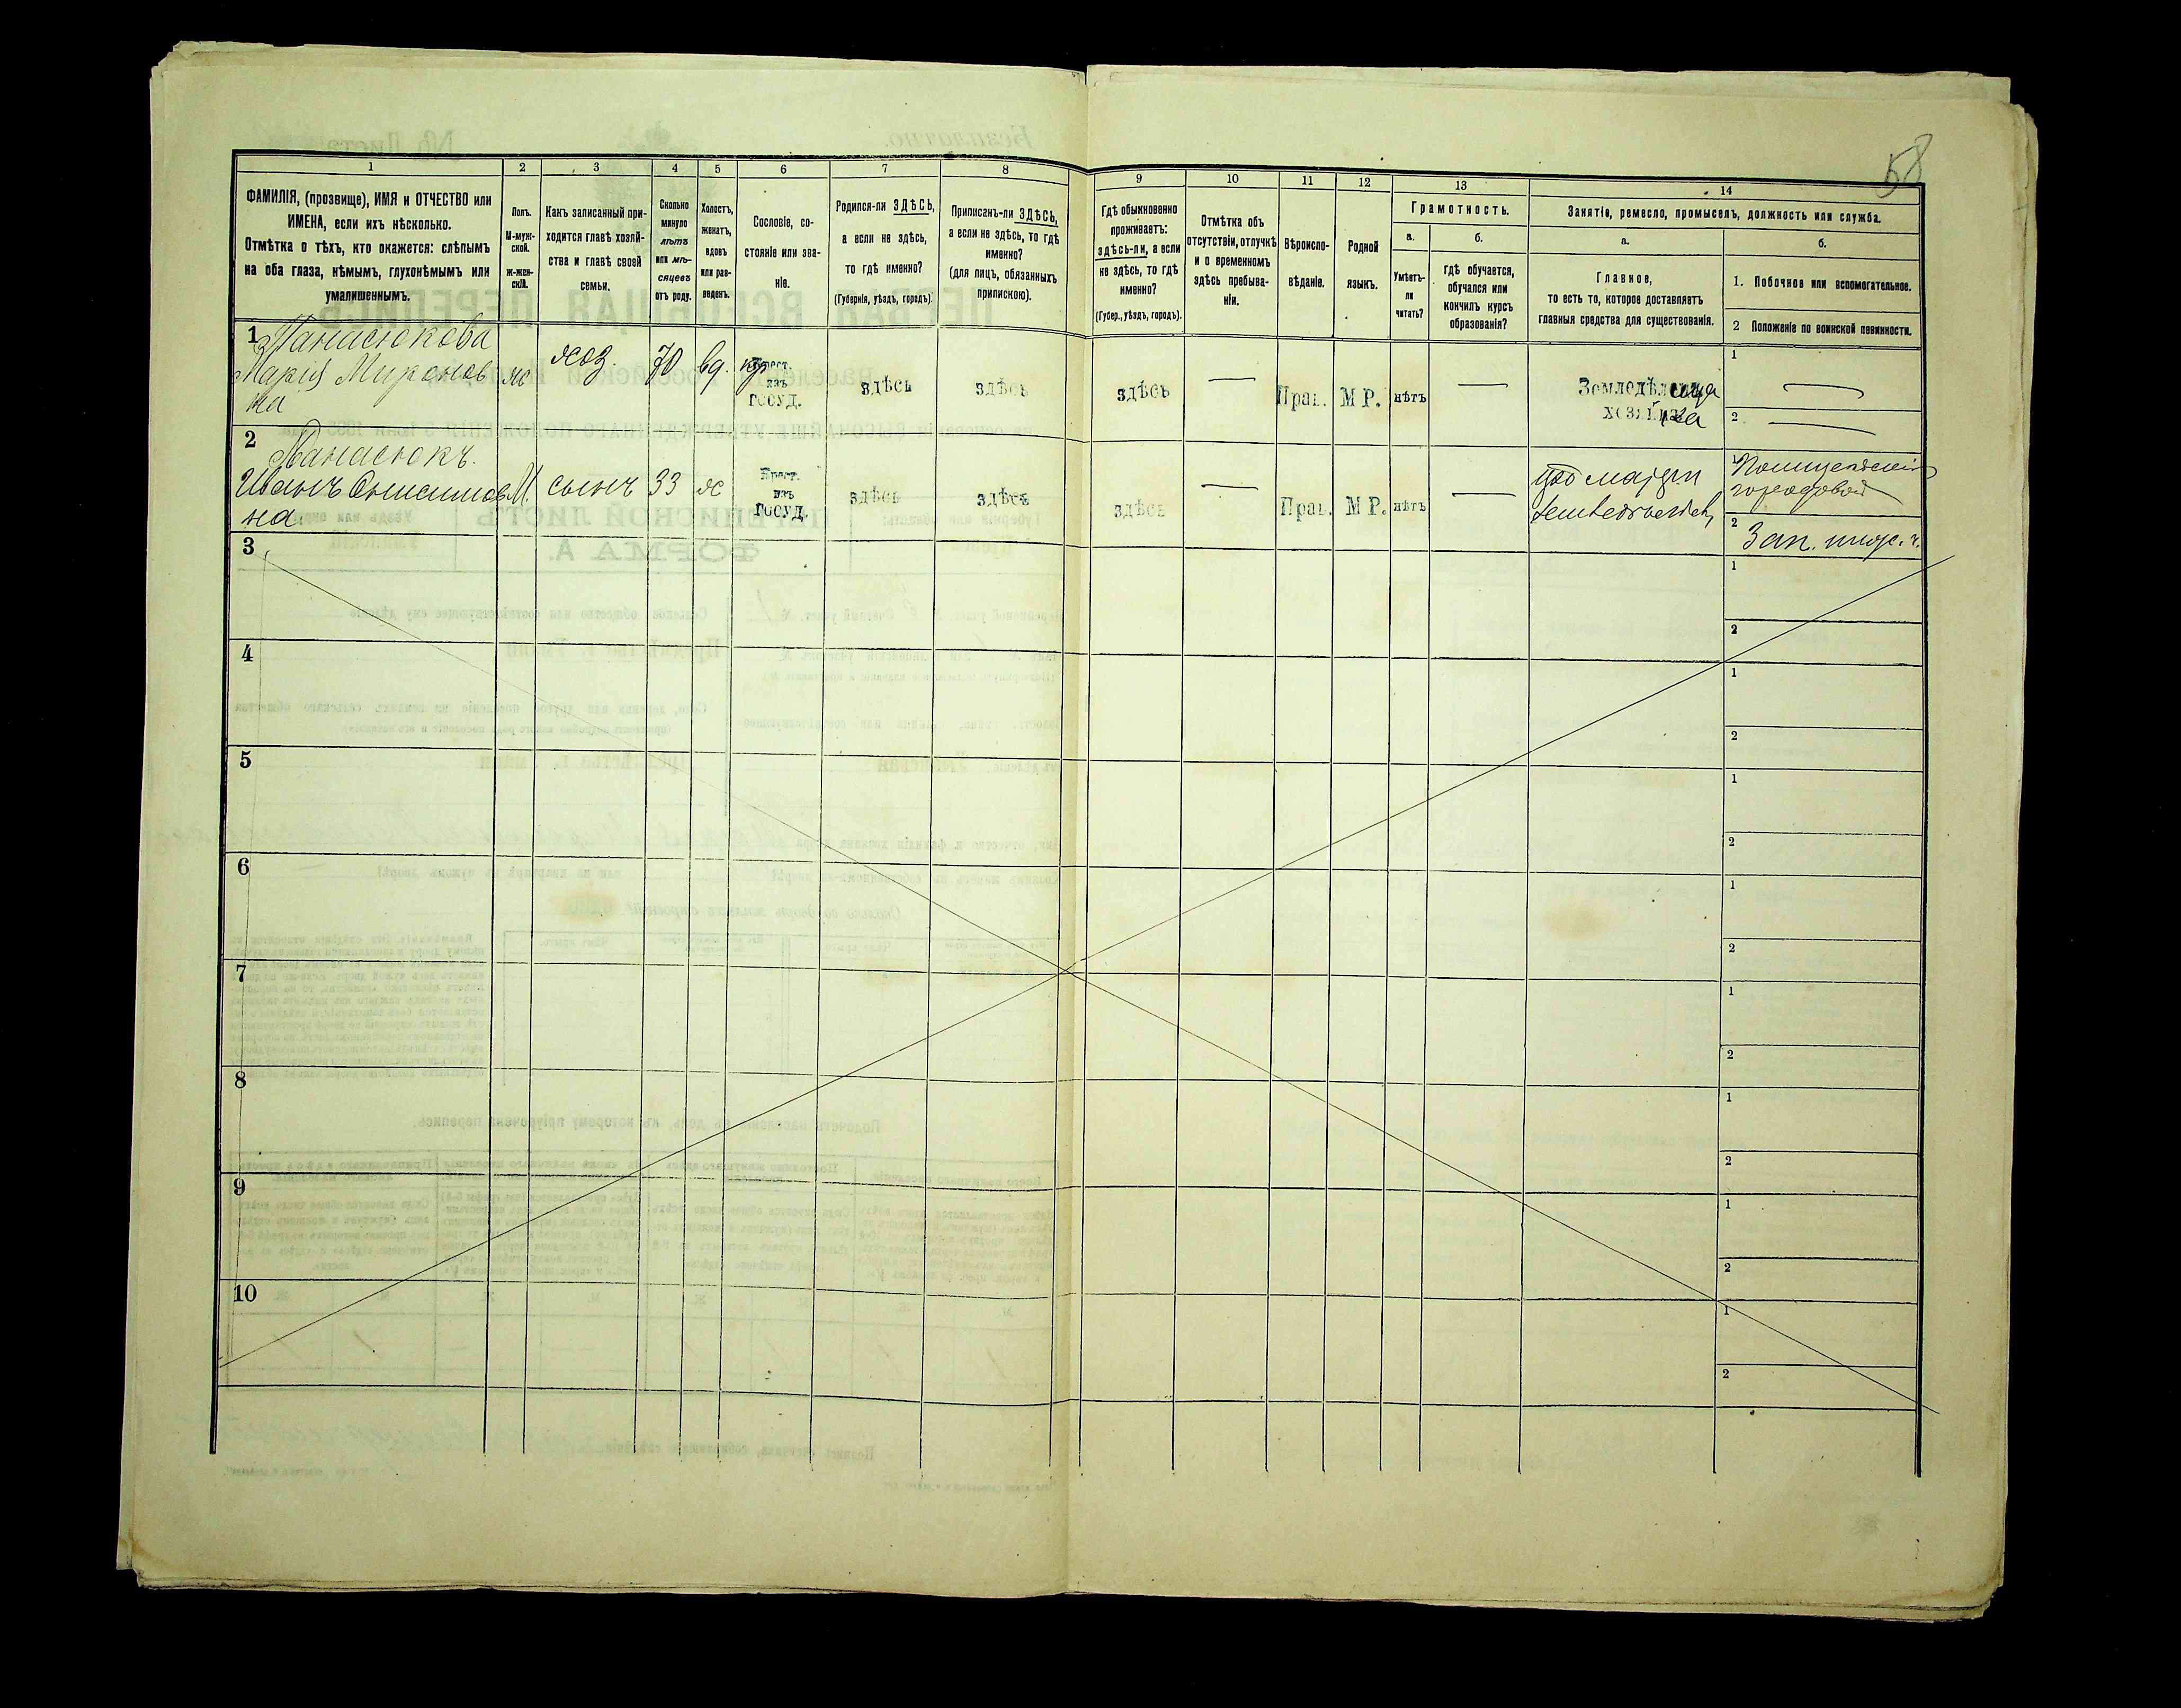 58
1 2 3 4 5 6 7 8 9 10 11 12 13 14
ФАМИЛІЯ, (прозвище), ИМЯ и ОТЧЕСТВО или
ИМЕНА, если ихъ нѣсколько.
Отмѣтка о тѣхъ, кто окажется: слѣпымъ
на оба глаза, нѣмымъ, глухонѣмымъ или
умалишеннымъ.
Полъ.
М-муж-
ской.
ж-жен-
скій.
Какъ записанный при-
ходится главѣ хозяй-
ства и главѣ своей
семьи.
Сколько
минуло
лѣтъ
или мѣ-
сяцевъ
отъ роду.
Холостъ,
женатъ,
вдовъ
или раз-
веденъ.
Сословіе, со-
стояніе или зва-
ніе.
Родился-ли ЗДѢСЬ,
а если не здѣсь,
то гдѣ именно?
(Губернія, уѣздъ, городъ).
Приписанъ-ли ЗДѢСЬ,
а если не здѣсь, то гдѣ
именно?
(для лицъ, обязанныхъ
припискою).
Гдѣ обыкновенно
проживаетъ:
здѣсь-ли, а если
не здѣсь, то гдѣ
именно?
(Губер., уѣздъ, городъ).
Отмѣтка объ
отсутствіи, отлучкѣ
и о временномъ
здѣсь пребыва-
ніи.
Вѣроиспо-
вѣданіе.
Родной
языкъ.
Грамотность.
а.
Умѣетъ-
ли
читать?
б.
гдѣ обучается,
обучался или
кончилъ курсъ
образованія?
Занятіе, ремесло, промыселъ, должность или служба.
а.
Главное,
то есть то, которое доставляетъ
главныя средства для существованія.
б.
1. Побочное или вспомогательное.
2 Положеніе по воинской повинности.
1
Панасюкова
Марія Миронов
на
ж хоз. 70 вд. кр
Крест.
изъ
госуд.
здѣсь здѣсь здѣсь — Прав. МР. нѣтъ —
Земледѣлица
хозяйка
1 —
2 —
2
Панасюкъ.
Иванъ Онисимов
на.
М. сынъ 33 ж
Крест.
изъ
госуд.
здѣсь здѣсь здѣсь — Прав. МР. нѣтъ —
при матери
1 Полицейскій
городовой
2 Зап.
3
1
2
4
1
2
5
1
2
6
1
2
7
1
2
8
1
2
9
1
2
10
1
2